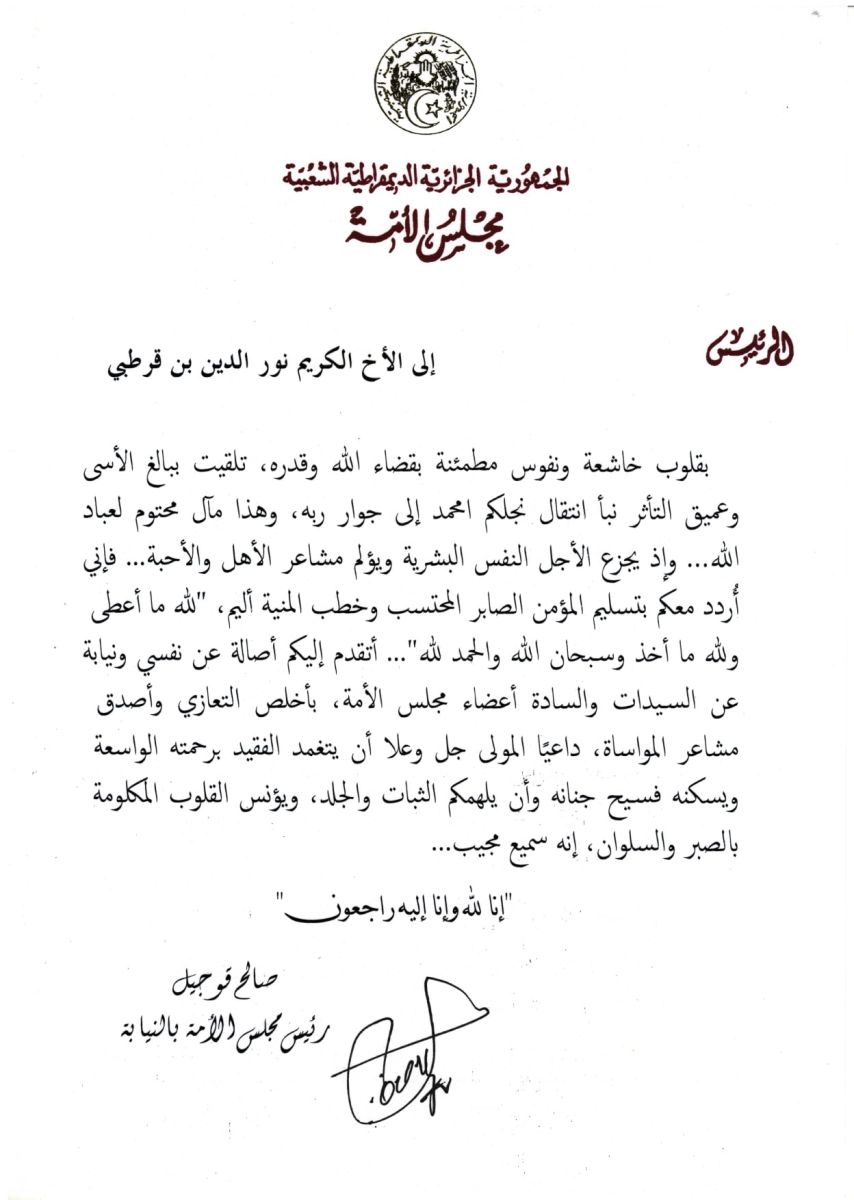 الجمهورية الجزائرية الديمقراطية الشعبية
الجمهوريّة الجزائريّة الديمقراطيّة الشعبيّة
مجلس الأمّة
الرئيس
إلى الأخ الكريم نور الدين بن قرطبي
بقلوب خاشعة ونفوس مطمئنة بقضاء الله وقدره، تلقيت ببالغ الأسى
وعميق التأثر نبأ انتقال نجلكم امحمد إلى جوار ربه، وهذا مآل محتوم لعباد
الله... وإذ يجزع الأجل النفس البشرية ويؤلم مشاعر الأهل والأحبة... فإني
أُردد معكم بتسليم المؤمن الصابر المحتسب وخطب المنية أليم، "لله ما أعطى
ولله ما أخذ وسبحان الله والحمد لله"... أتقدم إليكم أصالة عن نفسي ونيابة
عن السيدات والسادة أعضاء مجلس الأمة، بأخلص التعازي وأصدق
مشاعر المواساة، داعيًا المولى جل وعلا أن يتغمد الفقيد برحمته الواسعة
ويسكنه فسيح جنانه وأن يلهمكم الثبات والجلد، ويؤنس القلوب المكلومة
بالصبر والسلوان، إنه سميع مجيب...
"إنا لله وإنا إليه راجعون"
صالح قوجيل
رئيس مجلس الأمة بالنيابة